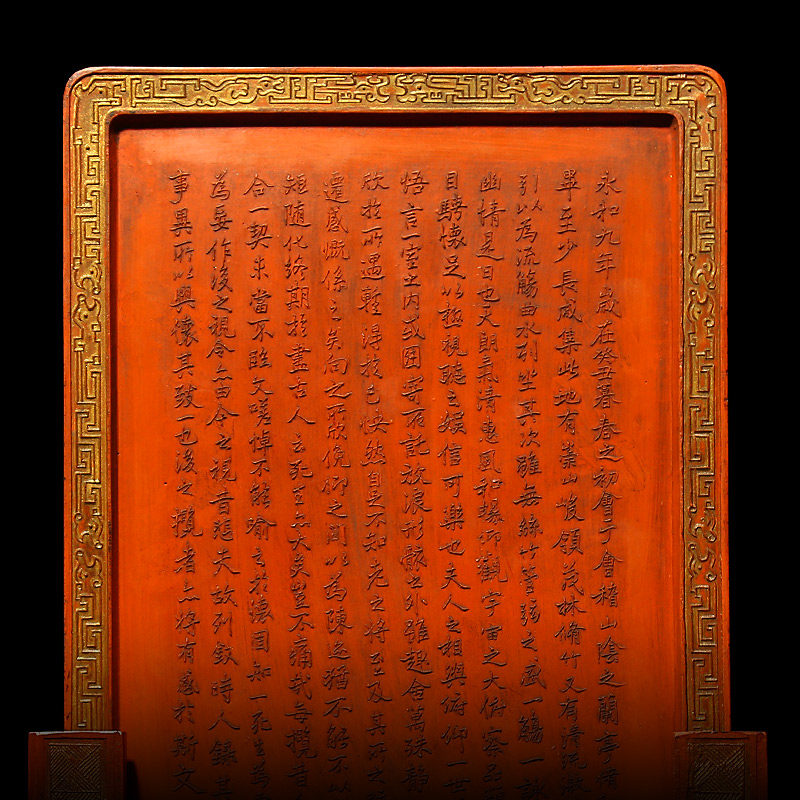 永和九年歲在癸丑暮春之初會于會稽山陰之蘭亭脩
畢至少長咸集此地有崇山峻領茂林脩竹又有清流激
引以為流觴曲水列坐其次雖無絲竹管弦之盛一觴一詠
幽情是日也天朗氣清惠風和暢仰觀宇宙之大俯察品
目騁懷足以極視聽之娛信可樂也夫人之相與俯仰一世
悟言一室之內或因寄所託放浪形骸之外雖趣舍萬殊靜
欣於所遇輒得於己快然自足不知老之將至及其所之
遷感慨係之矣向之所欣俛仰之間以為陳迹猶不能不以
短隨化終期於盡古人云死生亦大矣豈不痛哉每攬昔
合一契未嘗不臨文嗟悼不能喻之於懷固知一死生為
為妄作後之視今亦由今之視昔悲夫故列敘時人錄其
事異所以興懷其致一也後之攬者亦將有感於斯文